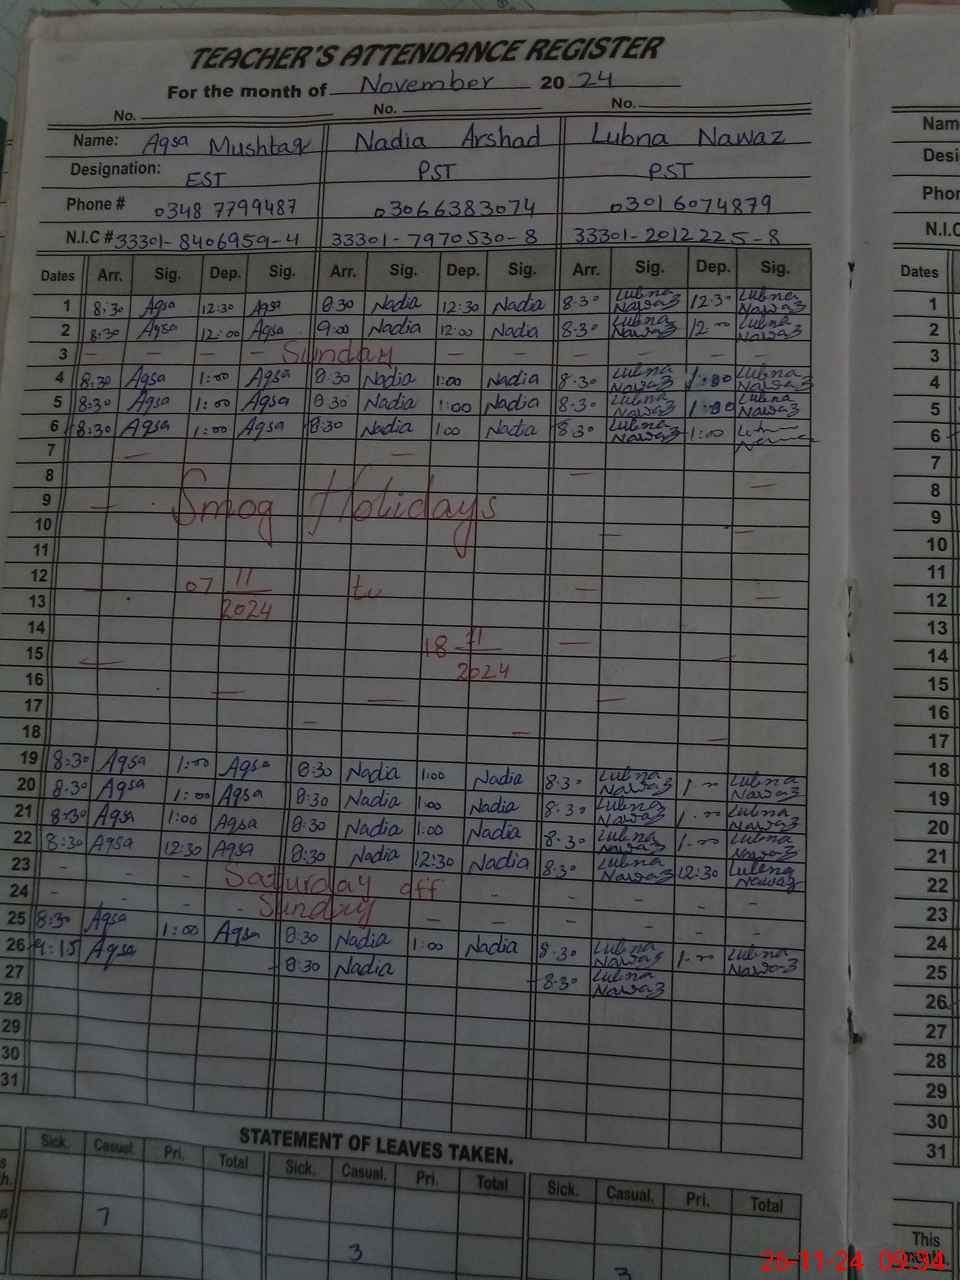 TEACHER'S ATTENDANCE REGISTER
For the month of November 2024
No. No. No.
Name: Aqsa Mushtaq Nadia Arshad Lubna Nawaz
Designation: EST PST PST
Phone # 0348 7799487 03066383074 03016074879
N.I.C # 33301-8406959-4 33301-7970530-8 33301-2012225-8
Dates Arr. Sig. Dep. Sig. Arr. Sig. Dep. Sig. Arr. Sig. Dep. Sig.
1 8:30 Aqsa 12:30 Aqsa 8:30 Nadia 12:30 Nadia 8:30 Lubna Nawaz 12:30 Lubna Nawaz
2 8:30 Aqsa 12:00 Aqsa 9:00 Nadia 12:00 Nadia 8:30 Lubna Nawaz 12:00 Lubna Nawaz
3 – – – – Sunday – – – – – –
4 8:30 Aqsa 1:00 Aqsa 8:30 Nadia 1:00 Nadia 8:30 Lubna Nawaz 1:00 Lubna Nawaz
5 8:30 Aqsa 1:00 Aqsa 8:30 Nadia 1:00 Nadia 8:30 Lubna Nawaz 1:00 Lubna Nawaz
6 8:30 Aqsa 1:00 Aqsa 8:30 Nadia 1:00 Nadia 8:30 Lubna Nawaz 1:00
7
8
9 Smog Holidays
10
11
12 07 11/2024 to
13
14
15 18 11/2024
16
17
18
19 8:30 Aqsa 1:00 Aqsa 8:30 Nadia 1:00 Nadia 8:30 Lubna Nawaz 1:00 Lubna Nawaz
20 8:30 Aqsa 1:00 Aqsa 8:30 Nadia 1:00 Nadia 8:30 Lubna Nawaz 1:00 Lubna Nawaz
21 8:30 Aqsa 1:00 Aqsa 8:30 Nadia 1:00 Nadia 8:30 Lubna Nawaz 1:00 Lubna Nawaz
22 8:30 Aqsa 12:30 Aqsa 8:30 Nadia 12:30 Nadia 8:30 Lubna Nawaz 12:30 Lubna Nawaz
23 - - - Saturday off - - - - -
24 - - - - Sunday - - - - - -
25 8:30 Aqsa 1:00 Aqsa 8:30 Nadia 1:00 Nadia 8:30 Lubna Nawaz 1:00 Lubna Nawaz
26 9:15 Aqsa 8:30 Nadia 8:30 Lubna Nawaz
27
28
29
30
31
STATEMENT OF LEAVES TAKEN.
Sick. Casual. Pri. Total Sick. Casual. Pri. Total Sick. Casual. Pri. Total
7
3
3
Dates
1
2
3
4
5
6
7
8
9
10
11
12
13
14
15
16
17
18
19
20
21
22
23
24
25
26
27
28
29
30
31
This
month.
26-11-24 09:34